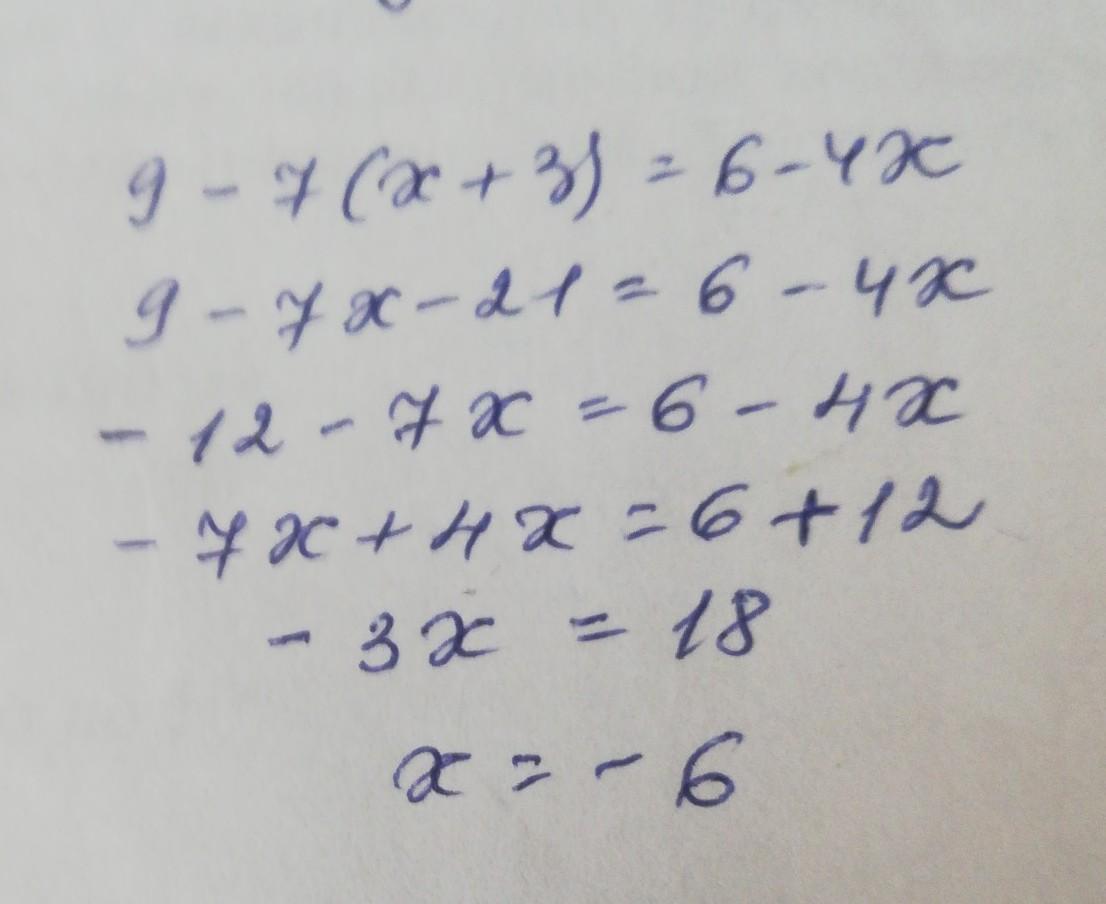 9 - 7(x + 3) = 6 - 4x
9 - 7x - 21 = 6 - 4x
- 12 - 7x = 6 - 4x
- 7x + 4x = 6 + 12
- 3x = 18
x = - 6